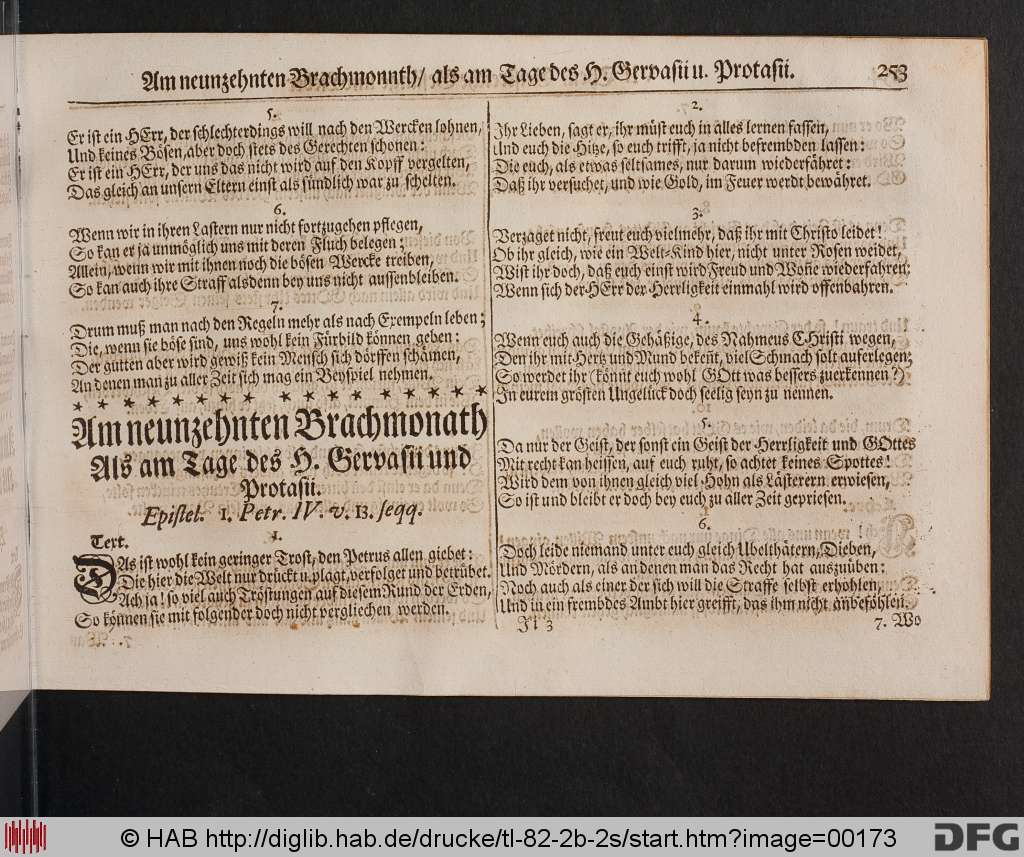 Am neunzehnten Brachmonnth/ als am Tage des H. Gervasii u. Protasii. 253
5.
Er ist ein HErr, der schlechterdings will nach den Wercken lohnen,
Und keines Bösen, aber doch stets des Gerechten schonen:
Er ist ein HErr, der uns das nicht wird auf den Kopff vergelten,
Das gleich an unsern Eltern einst als sündlich war zu schelten.
6.
Wenn wir in ihren Lastern nur nicht fortzugehen pflegen,
So kan er ja unmöglich uns mit deren Fluch belegen;
Allein, wenn wir mit ihnen noch die bösen Wercke treiben,
So kan auch ihre Straff alsdenn bey uns nicht aussenbleiben.
7.
Drum muß man nach den Regeln mehr als nach Exempeln leben;
Die, wenn sie böse sind, uns wohl kein Fürbild können geben:
Der guten aber wird gewiß kein Mensch sich dörffen schämen,
An denen man zu aller Zeit sich mag ein Beyspiel nehmen.
Am neunzehnten Brachmonath
Als am Tage des H. Gervasii und
Protasii.
Epistel. 1. Petr. IV. v. 13. seqq.
Text.
1.
DAs ist wohl kein geringer Trost, den Petrus allen giebet:
Die hier die Welt nur drückt u. plagt, verfolget und betrübet.
Ach ja! so viel auch Tröstungen auf diesem Rund der Erden,
So können sie mit folgender doch nicht verglichen werden.
2.
Ihr Lieben, sagt er, ihr müst euch in alles lernen fassen,
Und euch die Hitze, so euch trifft, ja nicht befrembden lassen:
Die euch, als etwas seltsames, nur darum wiederfähret:
Daß ihr versuchet, und wie Gold, im Feuer werdt bewähret.
3.
Verzaget nicht, freut euch vielmehr, daß ihr mit Christo leidet!
Ob ihr gleich, wie ein Welt-Kind hier, nicht unter Rosen weidet,
Wist ihr doch, daß euch einst wird Freud und Woñe wiederfahren:
Wenn sich der HErr der Herrligkeit einmahl wird offenbahren.
4.
Wenn euch auch die Gehäßige, des Nahmens CHristi wegen,
Den ihr mit Hertz und Mund bekeñt, viel Schmach solt auferlegen;
So werdet ihr (könnt euch wohl GOtt was bessers zuerkennen?)
In eurem grösten Ungelück doch seelig seyn zu nennen.
5.
Da nur der Geist, der sonst ein Geist der Herrligkeit und GOttes
Mit recht kan heissen, auf euch ruht, so achtet keines Spottes!
Wird dem von ihnen gleich viel Hohn als Lästerern erwiesen,
So ist und bleibt er doch bey euch zu aller Zeit gepriesen.
6.
Doch leide niemand unter euch gleich Ubelthätern, Dieben,
Und Mördern, als an denen man das Recht hat auszuüben:
Noch auch als einer der sich will die Straffe selbst erhohlen,
Und in ein frembdes Ambt hier greifft, das ihm nicht anbefohlen.
Ji 3
7. Wo
© HAB http://diglib.hab.de/drucke/tl-82-2b-2s/start.htm?image=00173
DFG